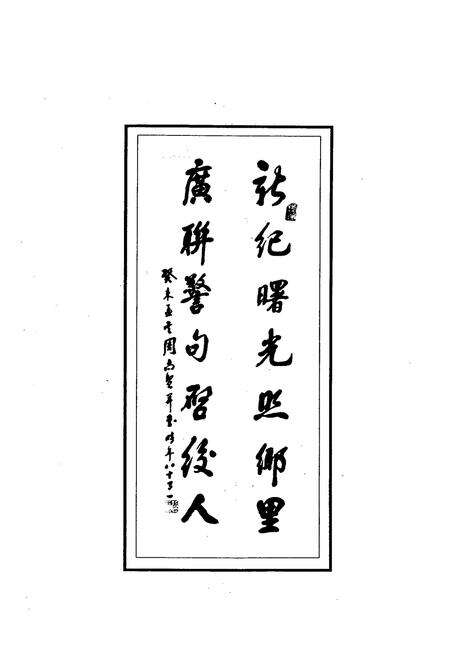 新纪曙光照鄉里
廣聯警句啓後人
癸未孟冬周
時年八十有一